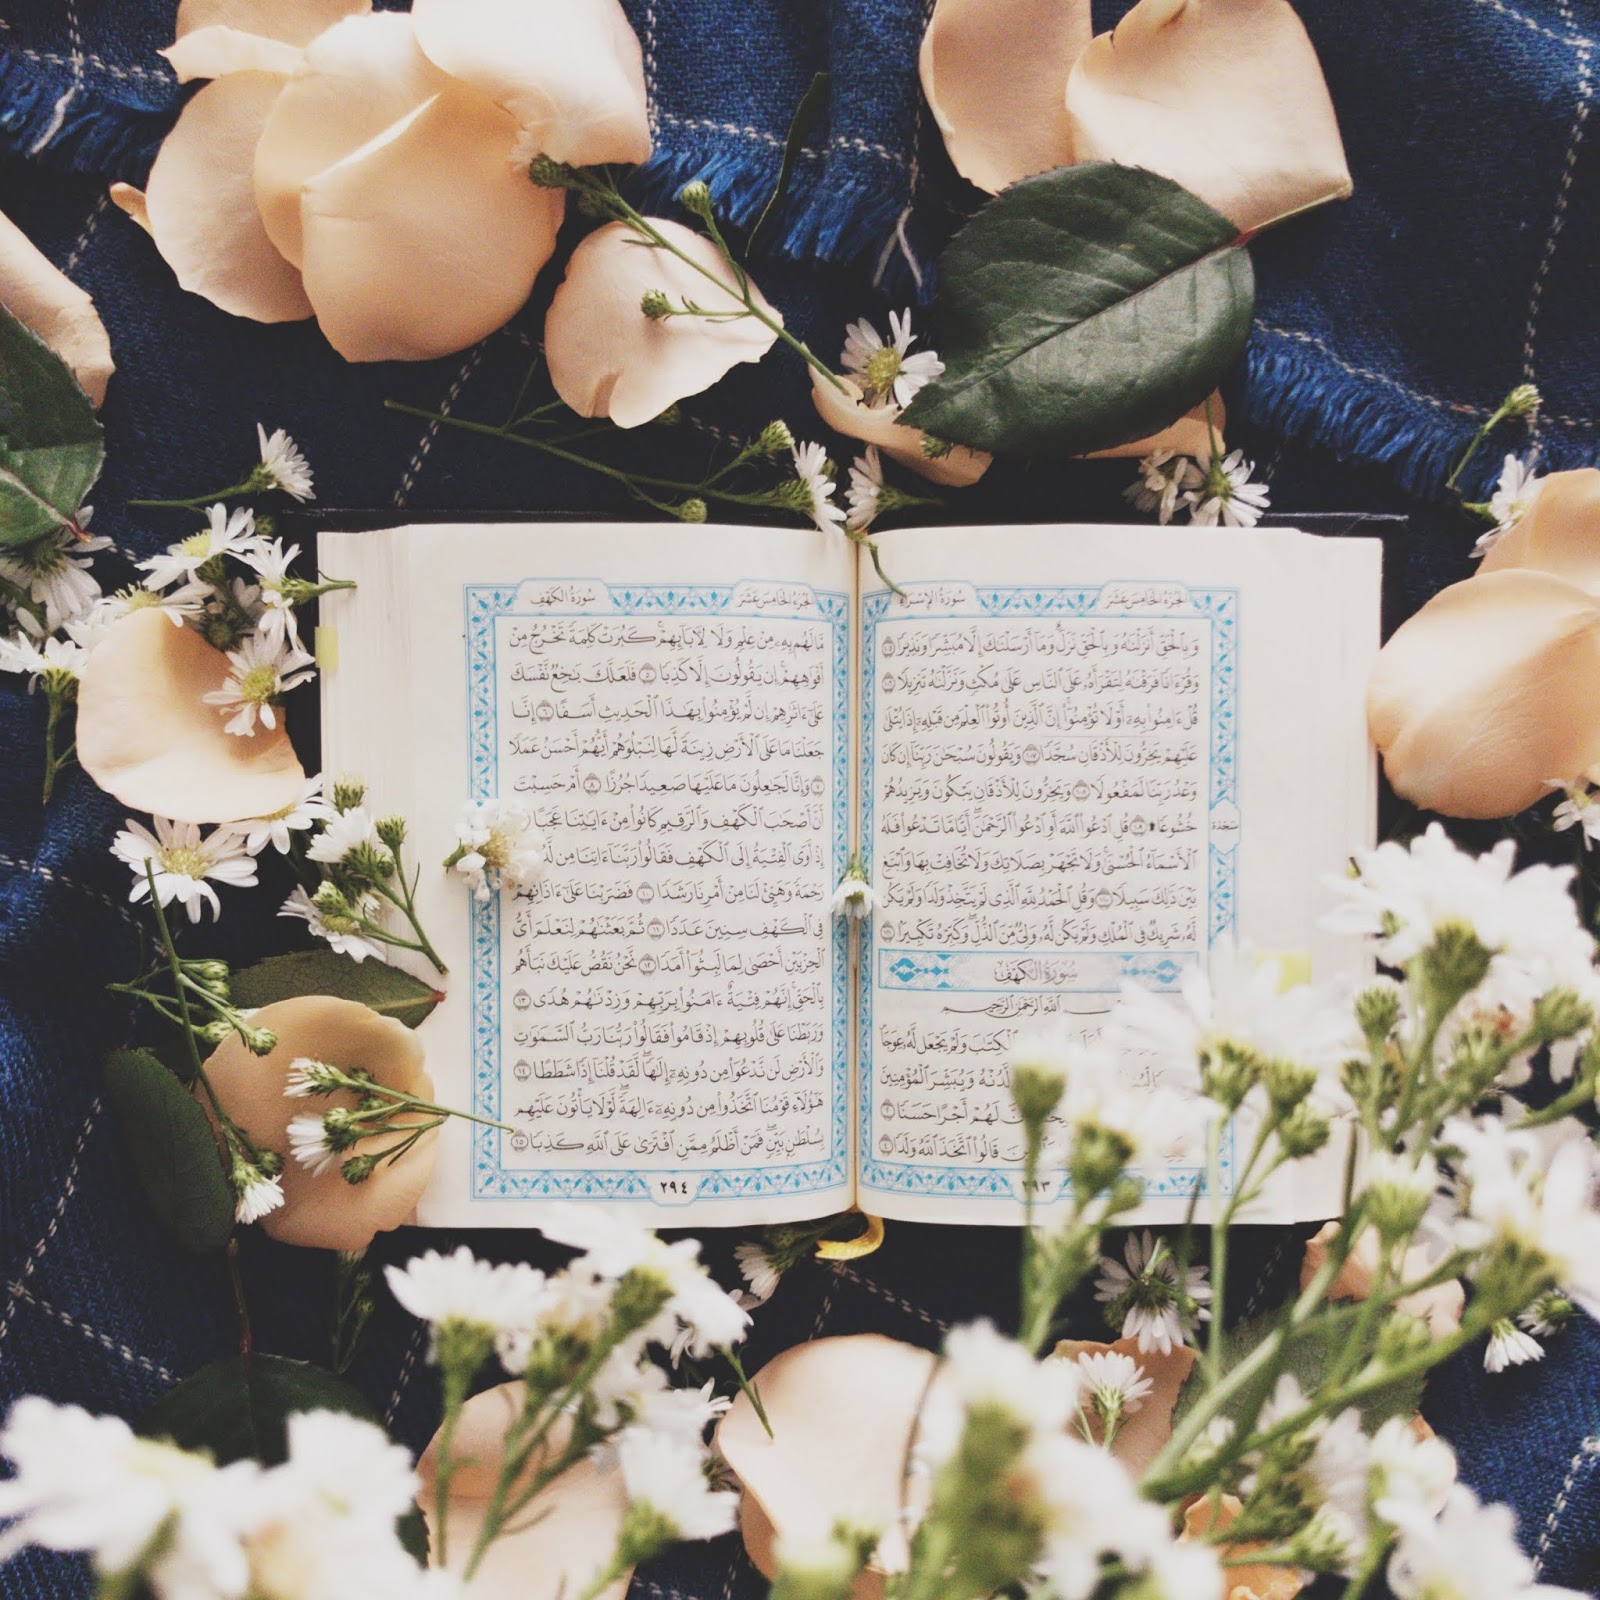 سُورَةُ الإِسْرَاءِ الجُزْءُ الخَامِسَ عَشَرَ
وَبِٱلْحَقِّ أَنزَلْنَٰهُ وَبِٱلْحَقِّ نَزَلَ ۗ وَمَآ أَرْسَلْنَٰكَ إِلَّا مُبَشِّرًا وَنَذِيرًا ١٠٥
وَقُرْءَانًا فَرَقْنَٰهُ لِتَقْرَأَهُۥ عَلَى ٱلنَّاسِ عَلَىٰ مُكْثٍ وَنَزَّلْنَٰهُ تَنزِيلًا ١٠٦
قُلْ ءَامِنُوا۟ بِهِۦٓ أَوْ لَا تُؤْمِنُوٓا۟ ۚ إِنَّ ٱلَّذِينَ أُوتُوا۟ ٱلْعِلْمَ مِن قَبْلِهِۦٓ إِذَا يُتْلَىٰ
عَلَيْهِمْ يَخِرُّونَ لِلْأَذْقَانِ سُجَّدًا ١٠٧ وَيَقُولُونَ سُبْحَٰنَ رَبِّنَآ إِن كَانَ
وَعْدُ رَبِّنَا لَمَفْعُولًا ١٠٨ وَيَخِرُّونَ لِلْأَذْقَانِ يَبْكُونَ وَيَزِيدُهُمْ
خُشُوعًا ۩ ١٠٩ قُلِ ٱدْعُوا۟ ٱللَّهَ أَوِ ٱدْعُوا۟ ٱلرَّحْمَٰنَ ۖ أَيًّا مَّا تَدْعُوا۟ فَلَهُ
سَجْدَة
ٱلْأَسْمَآءُ ٱلْحُسْنَىٰ ۚ وَلَا تَجْهَرْ بِصَلَاتِكَ وَلَا تُخَافِتْ بِهَا وَٱبْتَغِ
بَيْنَ ذَٰلِكَ سَبِيلًا ١١٠ وَقُلِ ٱلْحَمْدُ لِلَّهِ ٱلَّذِى لَمْ يَتَّخِذْ وَلَدًا وَلَمْ يَكُن
لَّهُۥ شَرِيكٌ فِى ٱلْمُلْكِ وَلَمْ يَكُن لَّهُۥ وَلِىٌّ مِّنَ ٱلذُّلِّ ۖ وَكَبِّرْهُ تَكْبِيرًۢا ١١١
سُورَةُ الكَهْفِ
ٱللَّهِ ٱلرَّحْمَٰنِ ٱلرَّحِيمِ
ٱلْكِتَٰبَ وَلَمْ يَجْعَل لَّهُۥ عِوَجَا
وَيُبَشِّرَ ٱلْمُؤْمِنِينَ
لَهُمْ أَجْرًا حَسَنًا ٢
قَالُوا۟ ٱتَّخَذَ ٱللَّهُ وَلَدًا ٤
٢٩٣
سُورَةُ الكَهْفِ الجُزْءُ الخَامِسَ عَشَرَ
مَّا لَهُم بِهِۦ مِنْ عِلْمٍ وَلَا لِءَابَآئِهِمْ ۚ كَبُرَتْ كَلِمَةً تَخْرُجُ مِنْ
أَفْوَٰهِهِمْ ۚ إِن يَقُولُونَ إِلَّا كَذِبًا ٥ فَلَعَلَّكَ بَٰخِعٌ نَّفْسَكَ
عَلَىٰٓ ءَاثَٰرِهِمْ إِن لَّمْ يُؤْمِنُوا۟ بِهَٰذَا ٱلْحَدِيثِ أَسَفًا ٦ إِنَّا
جَعَلْنَا مَا عَلَى ٱلْأَرْضِ زِينَةً لَّهَا لِنَبْلُوَهُمْ أَيُّهُمْ أَحْسَنُ عَمَلًا
٧ وَإِنَّا لَجَٰعِلُونَ مَا عَلَيْهَا صَعِيدًا جُرُزًا ٨ أَمْ حَسِبْتَ
أَنَّ أَصْحَٰبَ ٱلْكَهْفِ وَٱلرَّقِيمِ كَانُوا۟ مِنْ ءَايَٰتِنَا عَجَبًا
إِذْ أَوَى ٱلْفِتْيَةُ إِلَى ٱلْكَهْفِ فَقَالُوا۟ رَبَّنَآ ءَاتِنَا مِن
رَحْمَةً وَهَيِّئْ لَنَا مِنْ أَمْرِنَا رَشَدًا ١٠ فَضَرَبْنَا عَلَىٰٓ ءَاذَانِهِمْ
فِى ٱلْكَهْفِ سِنِينَ عَدَدًا ١١ ثُمَّ بَعَثْنَٰهُمْ لِنَعْلَمَ أَىُّ
ٱلْحِزْبَيْنِ أَحْصَىٰ لِمَا لَبِثُوٓا۟ أَمَدًا ١٢ نَّحْنُ نَقُصُّ عَلَيْكَ نَبَأَهُم
بِٱلْحَقِّ ۚ إِنَّهُمْ فِتْيَةٌ ءَامَنُوا۟ بِرَبِّهِمْ وَزِدْنَٰهُمْ هُدًى ١٣
وَرَبَطْنَا عَلَىٰ قُلُوبِهِمْ إِذْ قَامُوا۟ فَقَالُوا۟ رَبُّنَا رَبُّ ٱلسَّمَٰوَٰتِ
وَٱلْأَرْضِ لَن نَّدْعُوَا۟ مِن دُونِهِۦٓ إِلَٰهًا ۖ لَّقَدْ قُلْنَآ إِذًا شَطَطًا ١٤
هَٰٓؤُلَآءِ قَوْمُنَا ٱتَّخَذُوا۟ مِن دُونِهِۦٓ ءَالِهَةً ۖ لَّوْلَا يَأْتُونَ عَلَيْهِم
بِسُلْطَٰنٍۭ بَيِّنٍ ۖ فَمَنْ أَظْلَمُ مِمَّنِ ٱفْتَرَىٰ عَلَى ٱللَّهِ كَذِبًا ١٥
٢٩٤